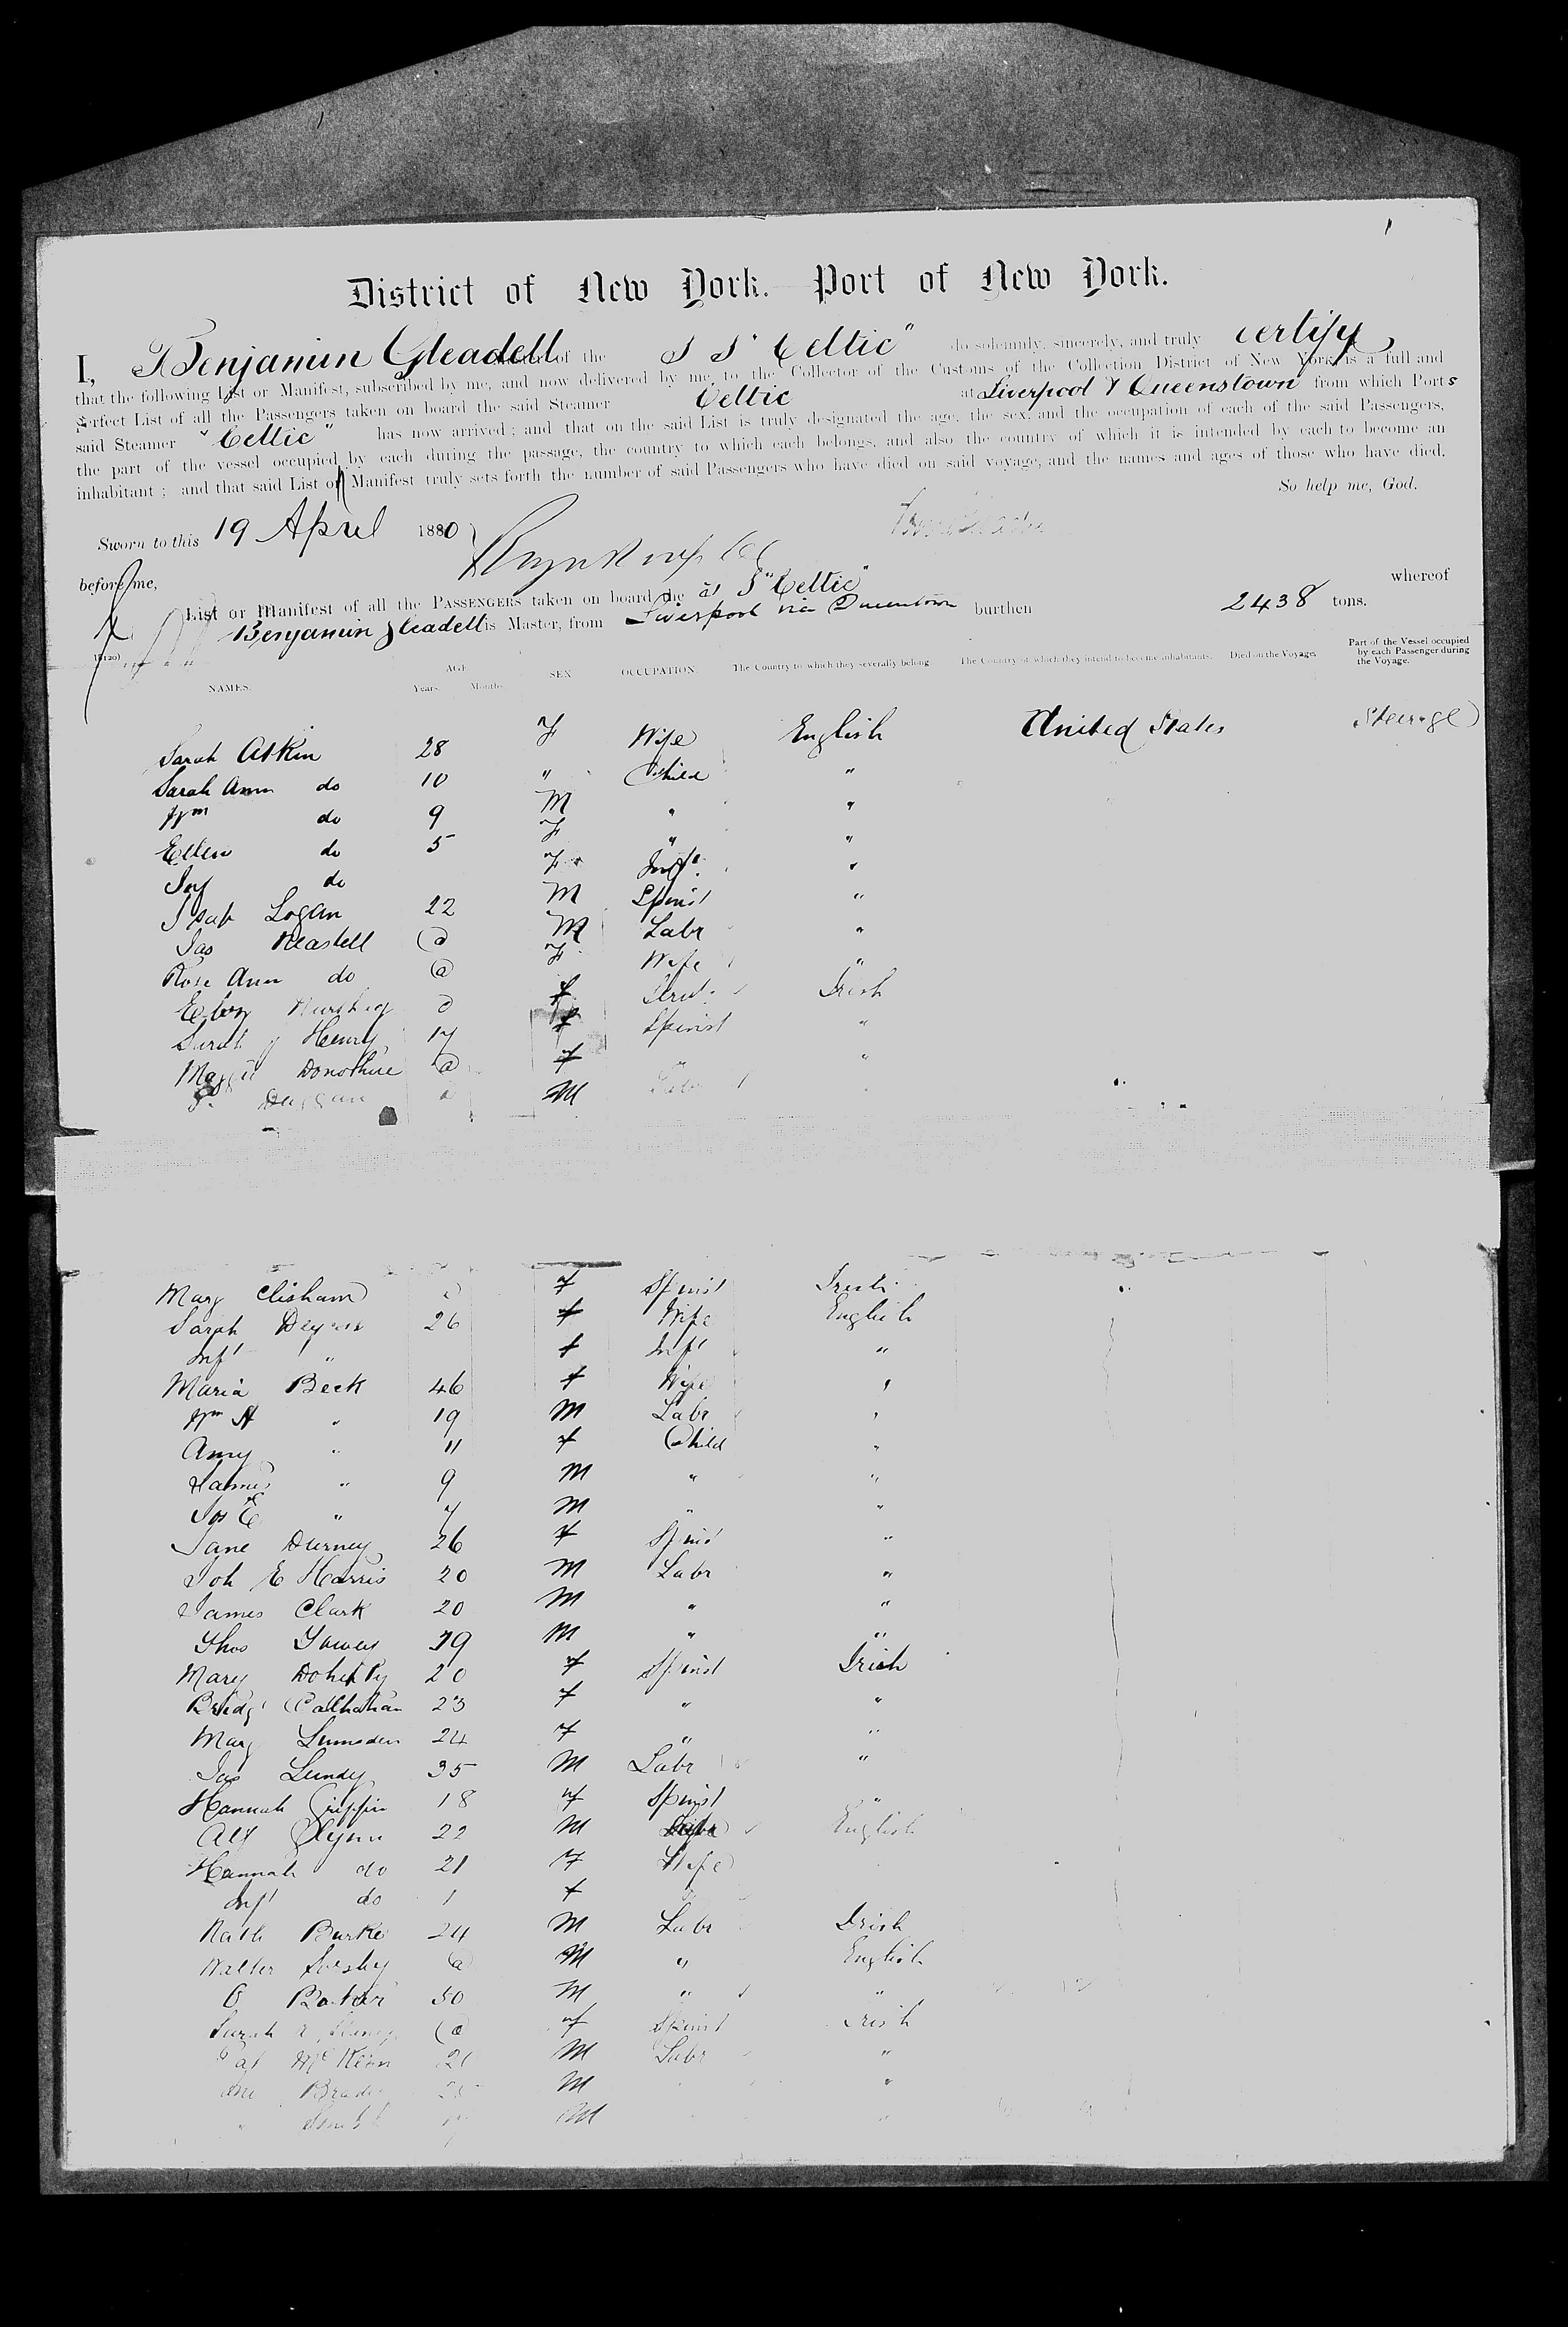 District of New York. Port of New York.
I, Benjamin Gleadell of the S S "Celtic" do solemnly, sincerely, and truly certify,
that the following List or Manifest, subscribed by me, and now delivered by me to the Collector of the Customs of the Collection District of New York, is a full and
perfect List of all the Passengers taken on board the said Steamer Celtic at Liverpool & Queenstown from which Ports
said Steamer "Celtic" has now arrived; and that on the said List is truly designated the age, the sex, and the occupation of each of the said Passengers,
the part of the vessel occupied by each during the passage, the country to which each belongs, and also the country of which it is intended by each to become an
inhabitant; and that said List or Manifest truly sets forth the number of said Passengers who have died on said voyage, and the names and ages of those who have died.
So help me, God.
Sworn to this 19 April 1880
before me,
List or Manifest of all the PASSENGERS taken on board the S S "Celtic" whereof
Benjamin Gleadell is Master, from Liverpool via Queenstown burthen 2438 tons.
NAMES. AGE Years. Months. SEX OCCUPATION. The Country to which they severally belong. The Country of which they intend to become inhabitants. Died on the Voyage. Part of the Vessel occupied by each Passenger during the Voyage.
Sarah Atkin 28 F Wife English United States Steerage
Sarah Ann do 10 " Child "
Wm do 9 M " "
Ellen do 5 F " "
Inf do F Inft "
Isab Logan 22 M Spinst "
Jas Neasdell @ M Labr "
Rose Ann do @ F Wife "
F Irish
Sarah J Henry 17 F Spinst "
Maggie Donohue @ F " "
Duggan M Labr
Mary Clisham F Spinst Irish
Sarah 26 F Wife English
Inft " F Inft "
Maria Beck 46 F Wife "
Wm H " 19 M Labr "
Amy " 11 F Child "
James " 9 M " "
Jos E " 7 M " "
Jane Durney 26 F Spinst "
Joh E Harris 20 M Labr "
James Clark 20 M " "
Thos 19 M " "
Mary Doherty 20 F Spinst Irish
Bridgt Callhahan 23 F " "
Mary Lumsden 24 F " "
Jas Lundy 35 M Labr "
Hannah Griffin 18 F Spinst "
Alf Glynn 22 M Labr English
Hannah do 21 F Wife
Inft do 1 F
Burke 24 M Labr Irish
Walter @ M " English
50 M " "
Sarah @ F Spinst Irish
Pat McKenn M Labr "
Brady M "
Smith M "